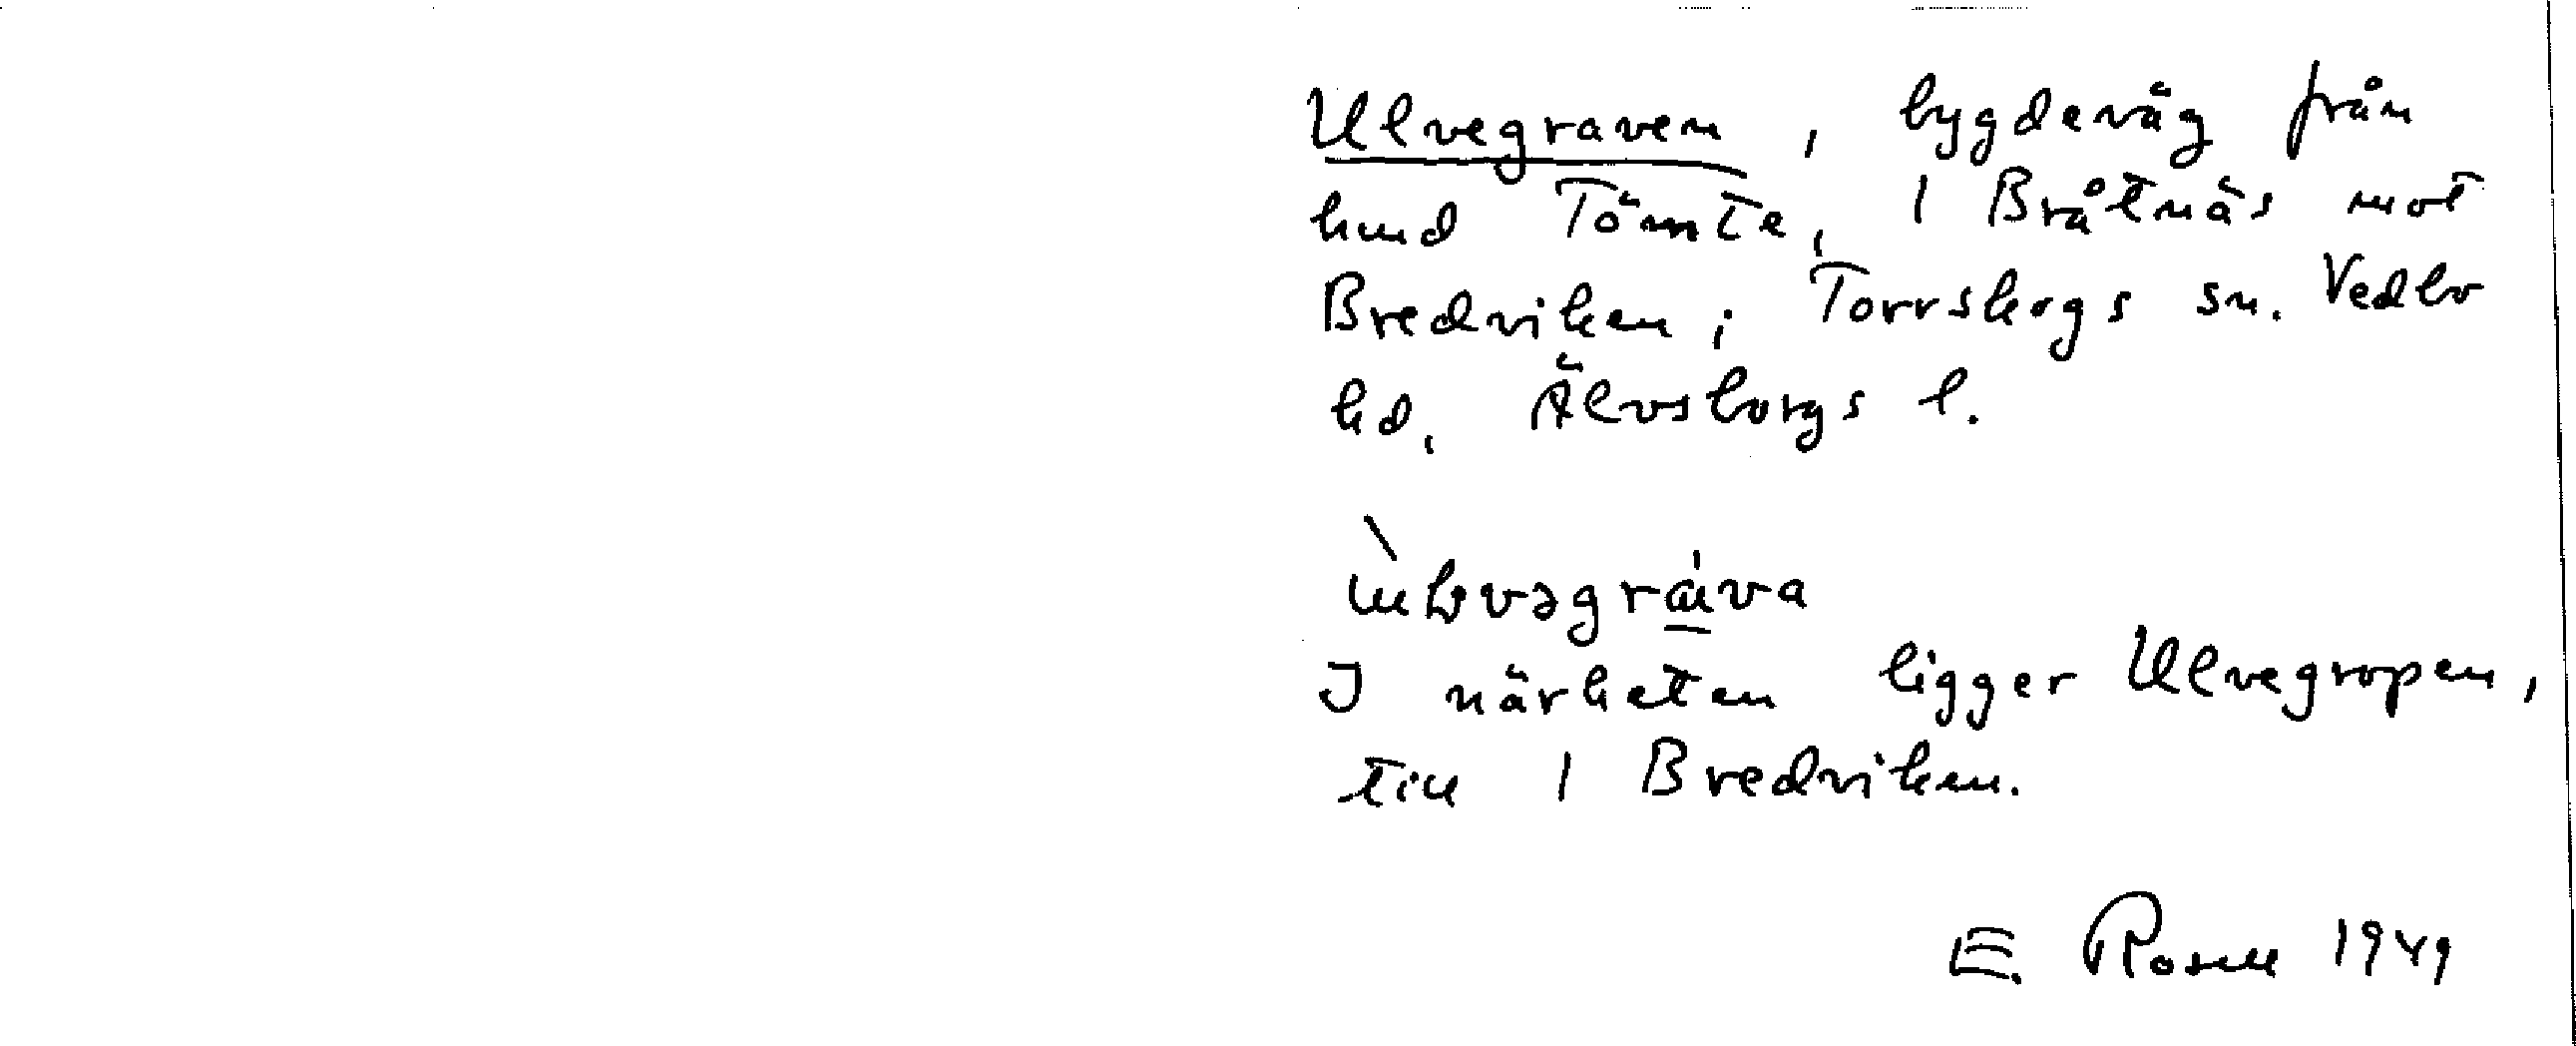 Ulvegraven, bygdeväg från
hmd Tömte, 1 Bråtnäs mot
Bredviken; Torrskogs sn. Vedbo
hd, Älvsborgs l.
I närheten ligger Ulvegropen,
till 1 Bredviken.
E. Rosell 1949